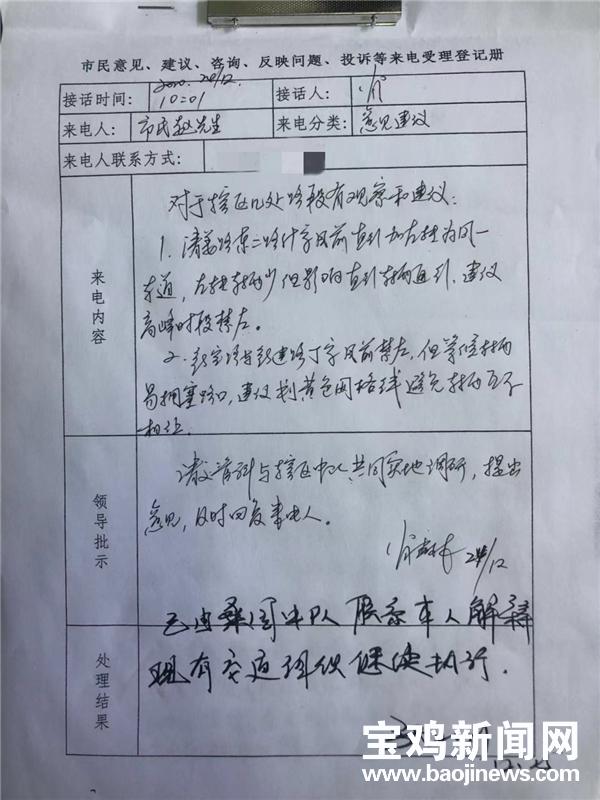 市民意见、建议、咨询、反映问题、投诉等来电受理登记册
接话时间: 2020. 24/12. 10:01 接话人:
来电人: 市民赵先生 来电分类: 意见建议
来电人联系方式:
来电内容
对于辖区几处路段有观察和建议:
1. 清姜路东二路什字目前直行加左转为同一
车道, 左转车辆少但影响直行车辆通行, 建议
高峰时段禁左。
2. 路与建路丁字目前禁左, 但等候车辆
易拥塞路口, 建议划黄色网格线避免车辆互不
相让。
领导批示
请交管科与辖区中队共同实地调研, 提出
意见, 及时回复来电人。
24/12
处理结果
已由中队联系来人解释
现有交通继续执行.
宝鸡新闻网
www.baojinews.com